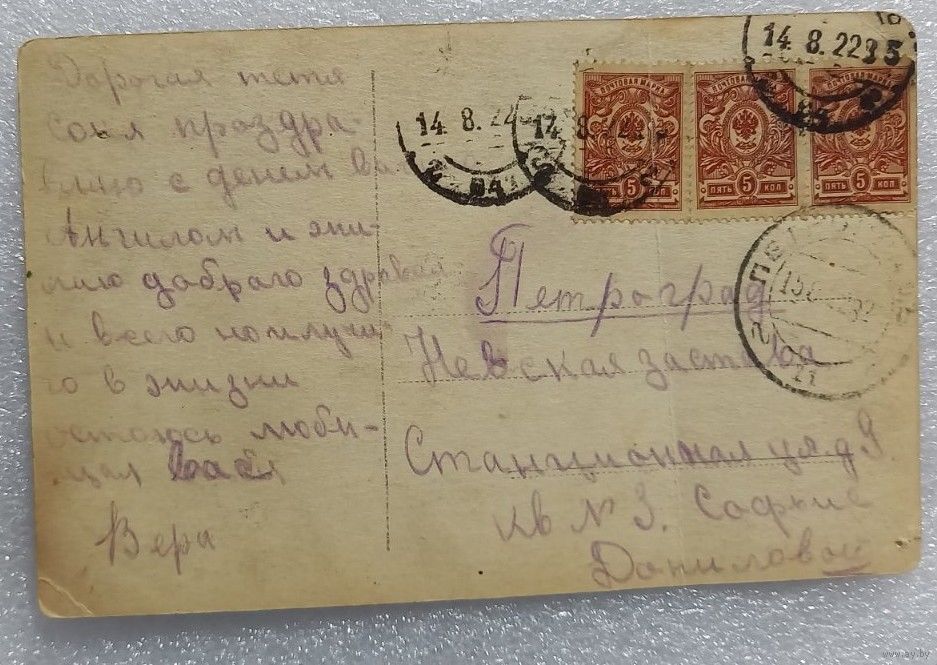 Дорогая тетя
Соня проздра-
вляю с денем
Ангилом и жи-
лаю добраго здравья
и всего наилучш
го в жизни
остаюсь люби-
щая вася
Вера
14.8.22
14.8.22
14.8.22
ПОЧТОВАЯ МАРКА
ПЯТЬ 5 КОП
ПОЧТОВАЯ МАРКА
ПЯТЬ 5 КОП
ПОЧТОВАЯ МАРКА
ПЯТЬ 5 КОП
Петроград
Невская застава
Станционная ул д 9
кв № 3. Софьие
Даниловой
www.ay.by